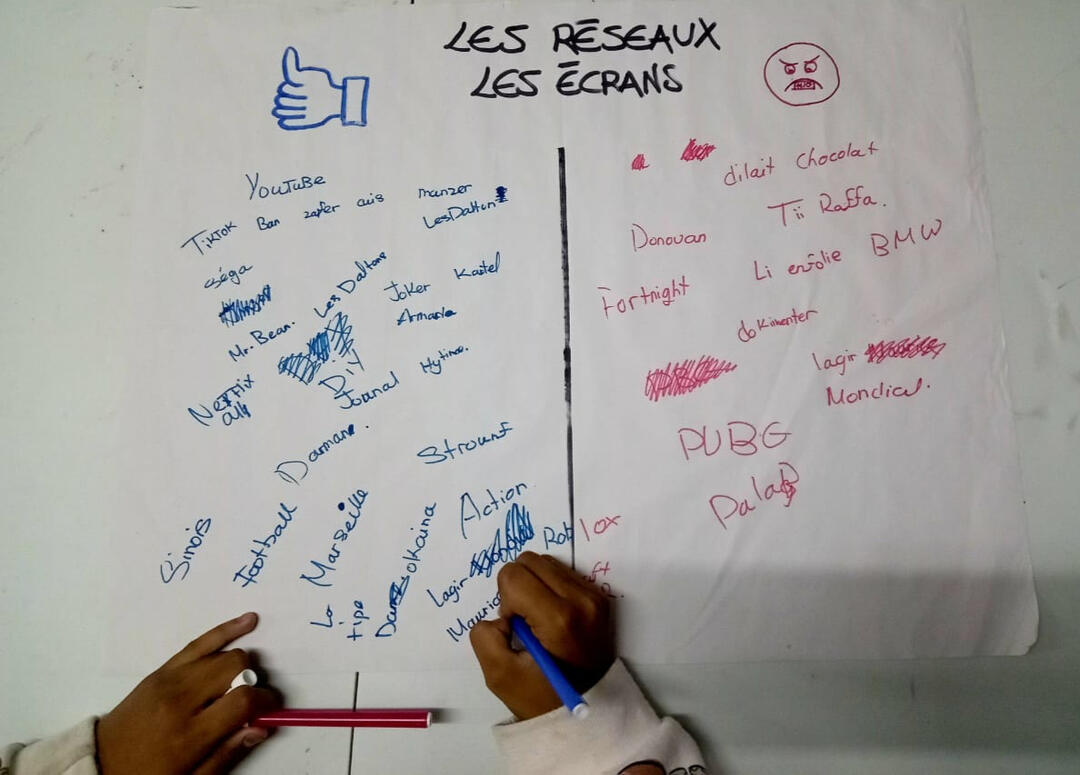 LES RÉSEAUX
LES ÉCRANS
YouTube
TikTok Ban zafer ais manzer
LesDalton
séga
Mr. Bean.
Les Daltons
Joker Kaitel
Armada
Netflix
DiY
Journal Hytime.
Darmane.
Strounf
Sinois
Football
La Marseille
tipe
Action
Lagir
Rob
lox
dilait chocolat
Tii Raffa.
Donovan
Li enfolie BMW
Fortnight
dokimenter
lagir
Mondial.
PUBG